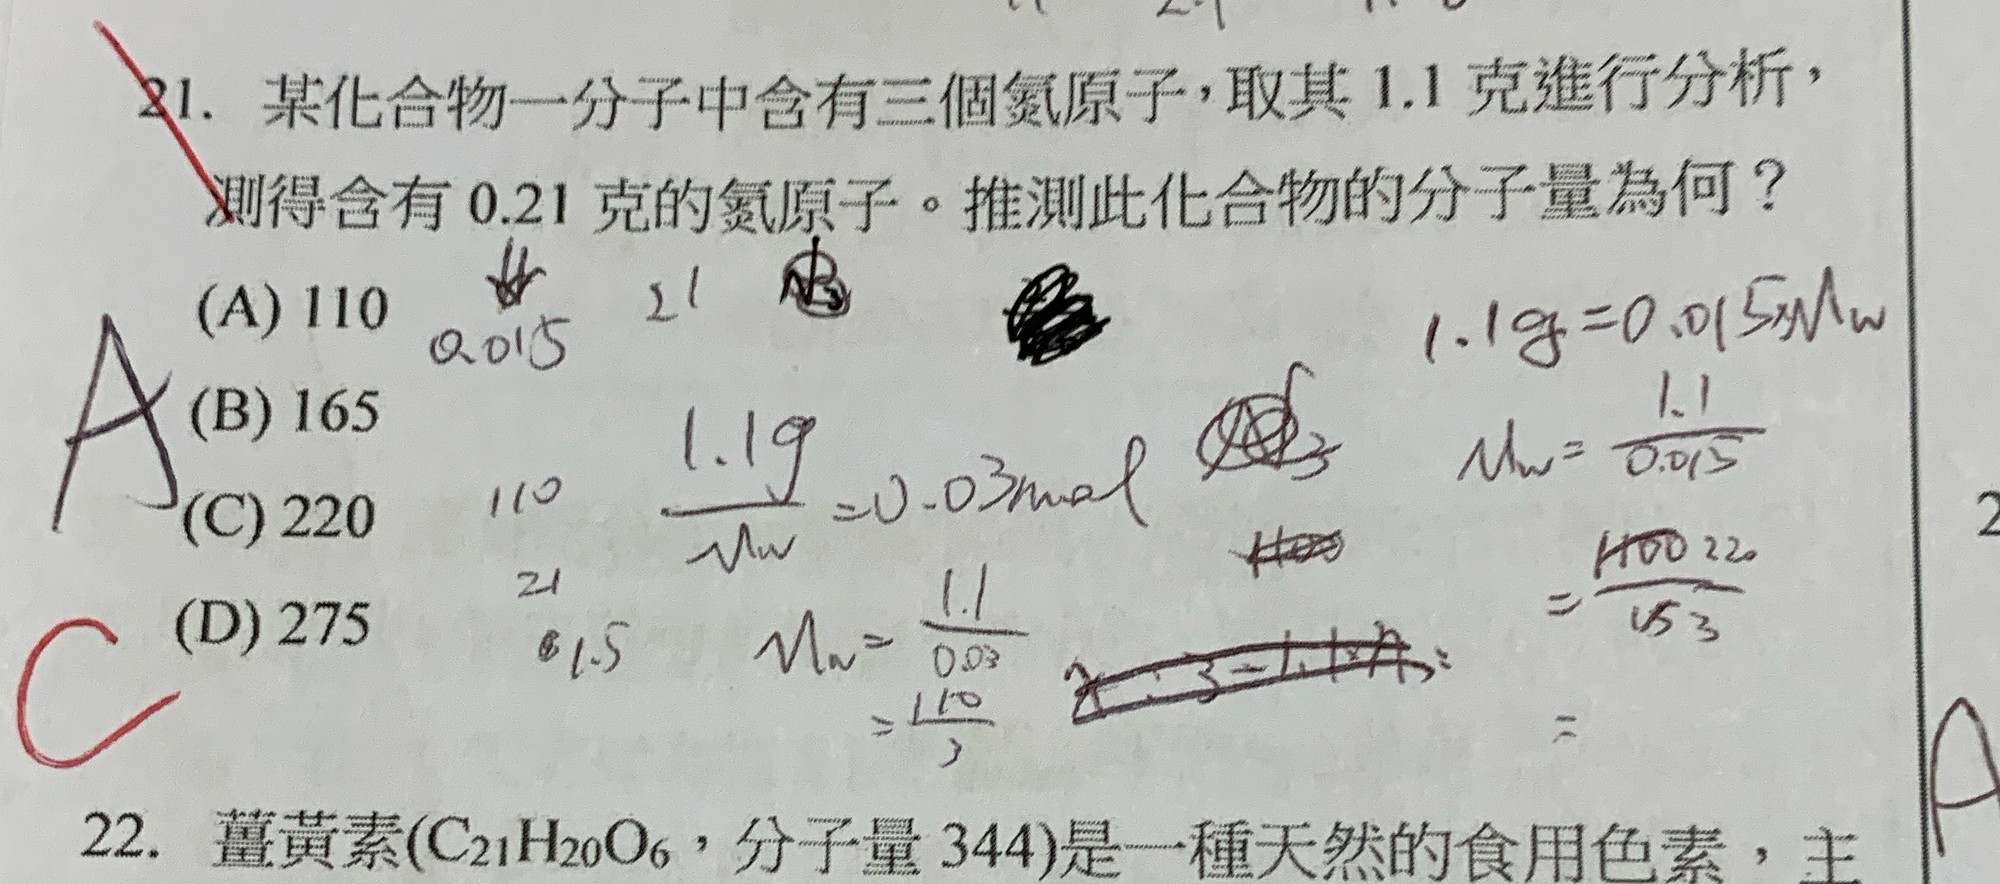 21. 某化合物一分子中含有三個氮原子，取其 1.1 克進行分析，
測得含有 0.21 克的氮原子。推測此化合物的分子量為何？
(A) 110
0.015
21
1.1g=0.015×Mw
A
(B) 165
1.1g/Mw =0.03mol
Mw= 1.1/0.015
(C) 220
110
= 220/3
21
1.5
(D) 275
Mw= 1.1/0.03
= 110/3
=
C
A
2
22. 薑黃素(C₂₁H₂₀O₆，分子量 344)是一種天然的食用色素，主